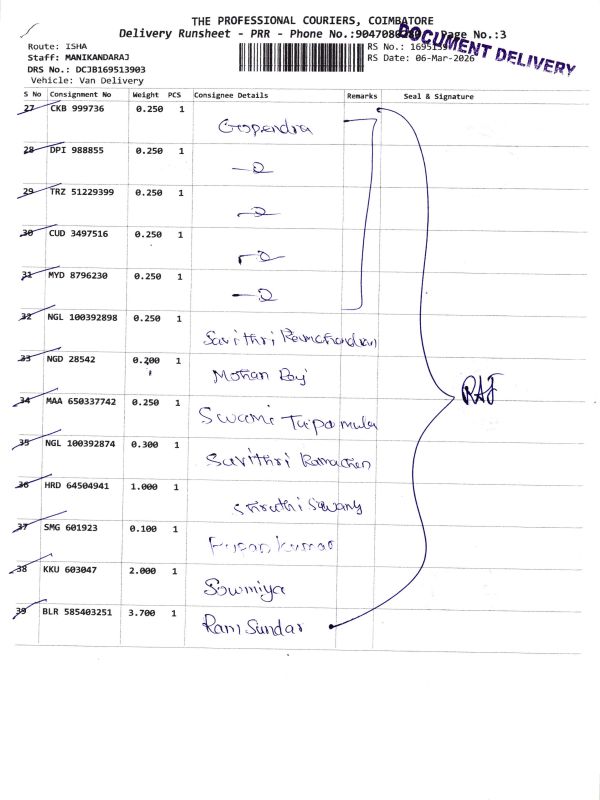 THE PROFESSIONAL COURIERS, COIMBATORE
Delivery Runsheet - PRR - Phone No.: Page No.:3
DOCUMENT DELIVERY
Route: ISHA
Staff: MANIKANDARAJ
RS Date: 06-Mar-2026
DRS No.: DCJB169513903
Vehicle: Van Delivery
S No Consignment No Weight PCS Consignee Details Remarks Seal & Signature
27 CKB 999736 0.250 1
Gopendra
28 DPI 988855 0.250 1
29 TRZ 51229399 0.250 1
30 CUD 3497516 0.250 1
31 MYD 8796230 0.250 1
32 NGL 100392898 0.250 1
Savithri Ramchandran
33 NGD 28542 0.200 1
Mohan
34 MAA 650337742 0.250 1
RAJ
Swami
35 NGL 100392874 0.300 1
Savithri
36 HRD 64504941 1.000 1
37 SMG 601923 0.100 1
Kumar
38 KKU 603047 2.000 1
Sowmiya
39 BLR 585403251 3.700 1
Ram Sundar